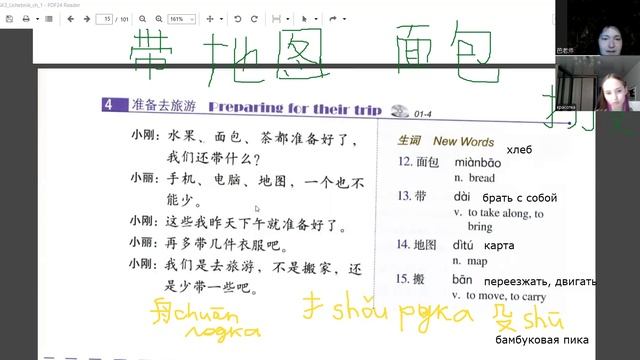 5K3_Uchebnik_ch_1 - PDF24 Reader
15 / 101
161%
带 地图 面包
打
巴老师
красотка
4 准备去旅游 Preparing for their trip 01-4
小刚：水果、面包、茶都准备好了，
我们还带什么？
小丽：手机、电脑、地图，一个也不
能少。
小刚：这些我昨天下午就准备好了。
小丽：再多带几件衣服吧。
小刚：我们是去旅游，不是搬家，还
是少带一些吧。
生词 New Words
хлеб
12. 面包 miànbāo
n. bread
13. 带 dài брать с собой
v. to take along, to
bring
14. 地图 dìtú карта
n. map
15. 搬 bān переезжать, двигать
v. to move, to carry
舟 chuān 扌 shǒu рука 殳 shū
лодка
бамбуковая пика